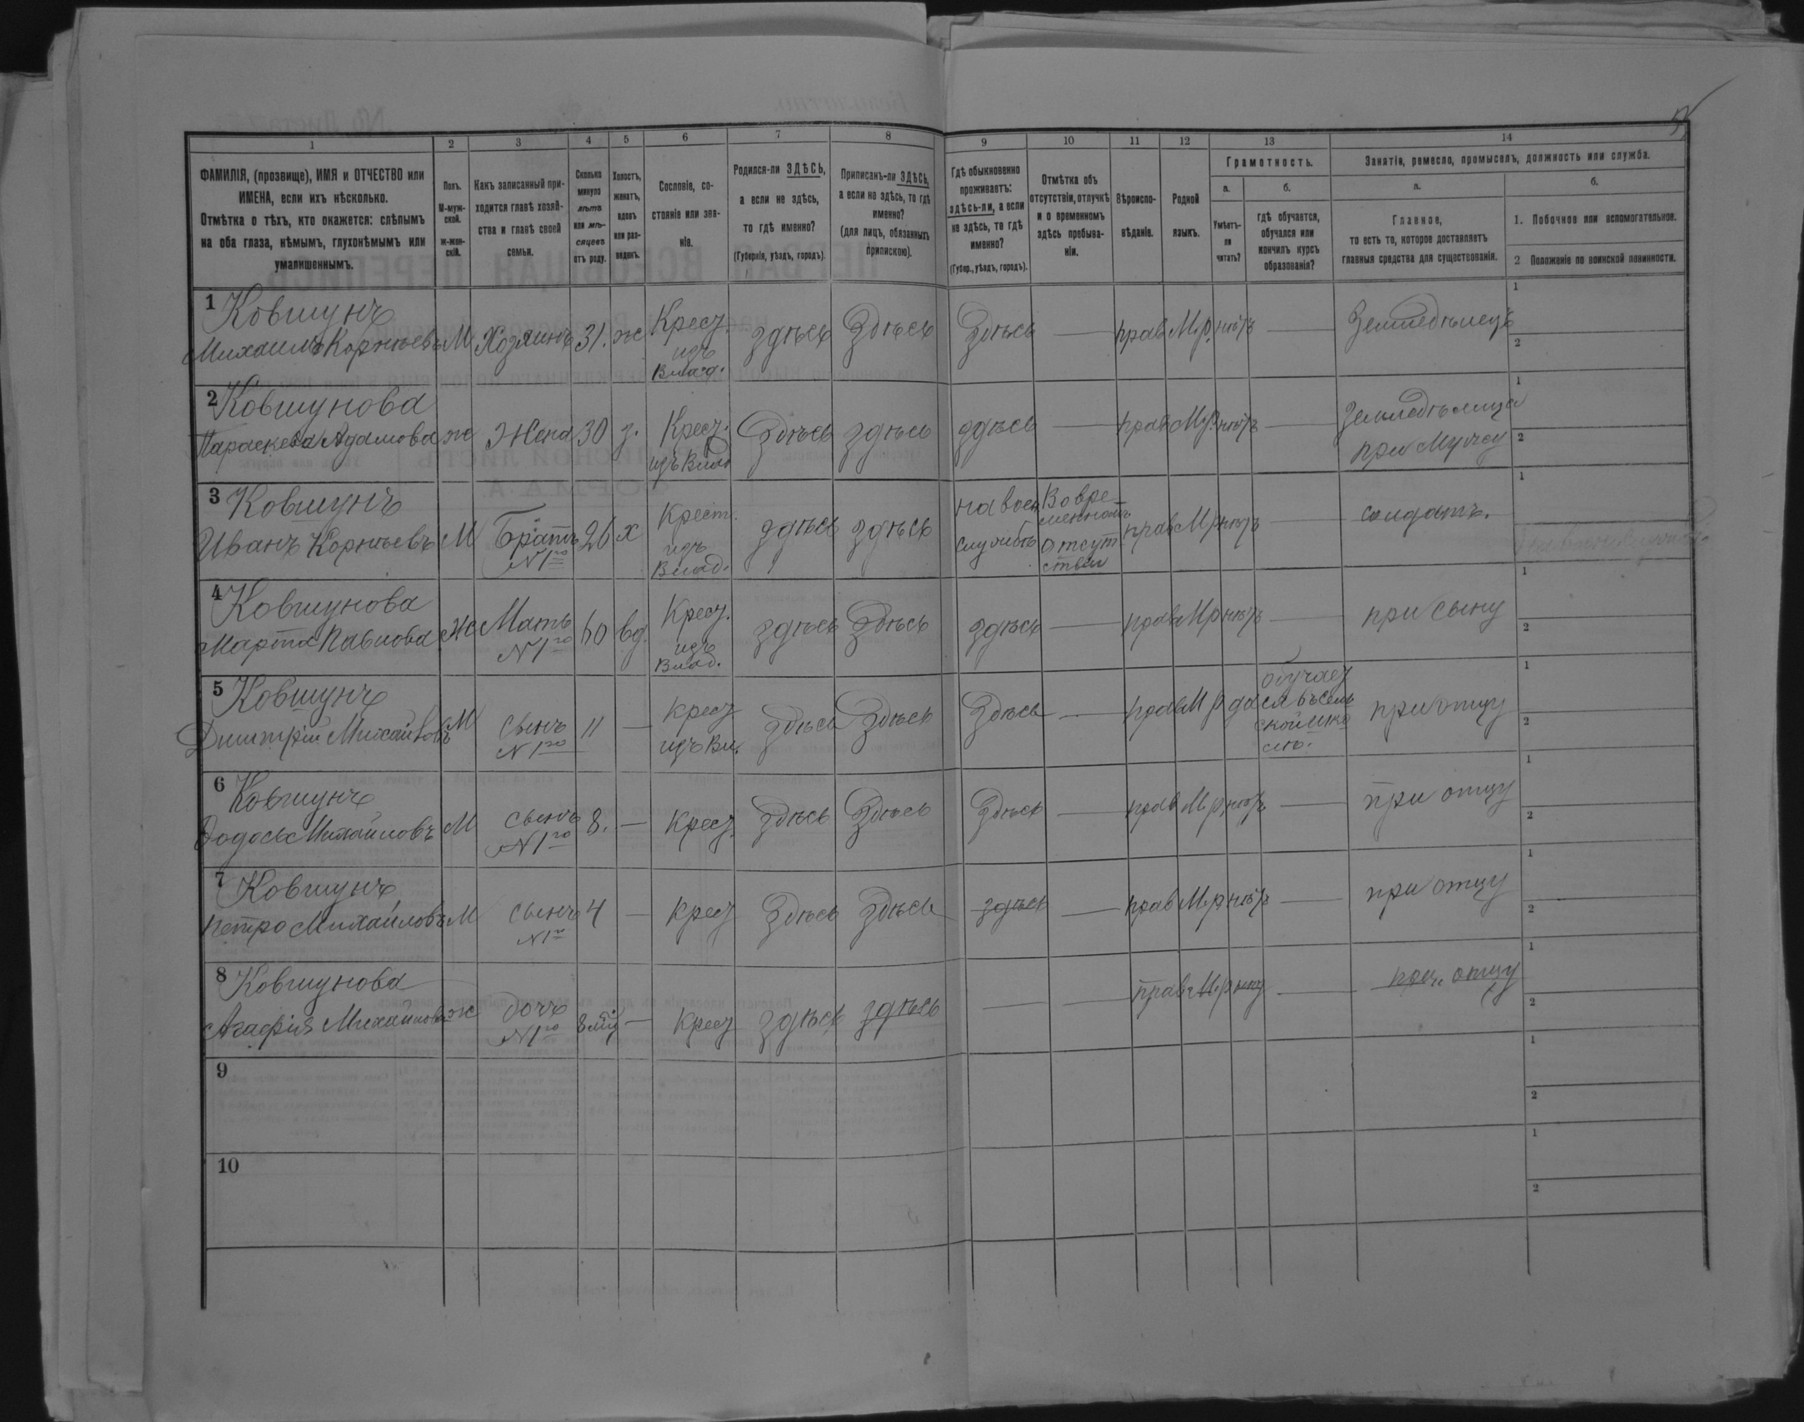 1 2 3 4 5 6 7 8 9 10 11 12 13 14
ФАМИЛІЯ, (прозвище), ИМЯ и ОТЧЕСТВО или
ИМЕНА, если ихъ нѣсколько.
Отмѣтка о тѣхъ, кто окажется: слѣпымъ
на оба глаза, нѣмымъ, глухонѣмымъ или
умалишеннымъ.
Полъ.
М-муж-
ской.
ж-жен-
скій.
Какъ записанный при-
ходится главѣ хозяй-
ства и главѣ своей
семьи.
Сколько
минуло
лѣтъ
или мѣ-
сяцевъ
отъ роду.
Холостъ,
женатъ,
вдовъ
или раз-
веденъ.
Сословіе, со-
стояніе или зва-
ніе.
Родился-ли ЗДѢСЬ,
а если не здѣсь,
то гдѣ именно?
(Губернія, уѣздъ, городъ).
Приписанъ-ли ЗДѢСЬ,
а если не здѣсь, то гдѣ
именно?
(для лицъ, обязанныхъ
припискою).
Гдѣ обыкновенно
проживаетъ:
здѣсь-ли, а если
не здѣсь, то гдѣ
именно?
(Губер., уѣздъ, городъ).
Отмѣтка объ
отсутствіи, отлучкѣ
и о временномъ
здѣсь пребыва-
ніи.
Вѣроиспо-
вѣданіе.
Родной
языкъ.
Грамотность.
а.
Умѣетъ-
ли
читать?
б.
гдѣ обучается,
обучался или
кончилъ курсъ
образованія?
Занятіе, ремесло, промыселъ, должность или служба.
а.
Главное,
то есть то, которое доставляетъ
главныя средства для существованія.
б.
1. Побочное или вспомогательное.
2 Положеніе по воинской повинности.
1 Ковтунъ
Михаилъ Корнѣевъ М Хозяинъ 31. ж Крест. изъ Влад. здѣсь Здѣсь Здѣсь — прав М.р. нѣтъ — Земледѣлецъ
1
2
2 Ковтунова
Параскева Адамова ж Жена 30 з. Крест. изъ Влад Здѣсь здѣсь здѣсь — прав М.р. нѣтъ — Земледѣлица
при Мужу
1
2
3 Ковтунъ
Иванъ Корнѣевъ М Братъ №1го 26 х Крест. изъ Влад. здѣсь здѣсь на воен службѣ Во временномъ отсутствіи прав М.р нѣтъ — солдатъ.
1
4 Ковтунова
Марта Павлова Ж Мать №1го 60 вд. Крест. изъ Влад. здѣсь Здѣсь здѣсь — прав М.р нѣтъ — при сыну
1
2
5 Ковтунъ
Дмитрій Михайловъ М сынъ №1го 11 — крест изъ Вл. здѣсь Здѣсь Здѣсь — прав М р да обучает
ся въ сель
ской шко
лѣ. при отцу
1
2
6 Ковтунъ
Додосъ Михайловъ М сынъ №1го 8. — крест. Здѣсь Здѣсь Здѣсь — прав М.р нѣтъ — при отцу
1
2
7 Ковтунъ
Петро Михайловъ М сынъ №1го 4 — крест Здѣсь Здѣсь здѣсь — прав М.р нѣтъ — при отцу
1
2
8 Ковтунова
Агафія Михайлова ж дочь №1го 8 — крест здѣсь здѣсь — — прав М.р нѣт — при отцу
1
2
9
1
2
10
1
2